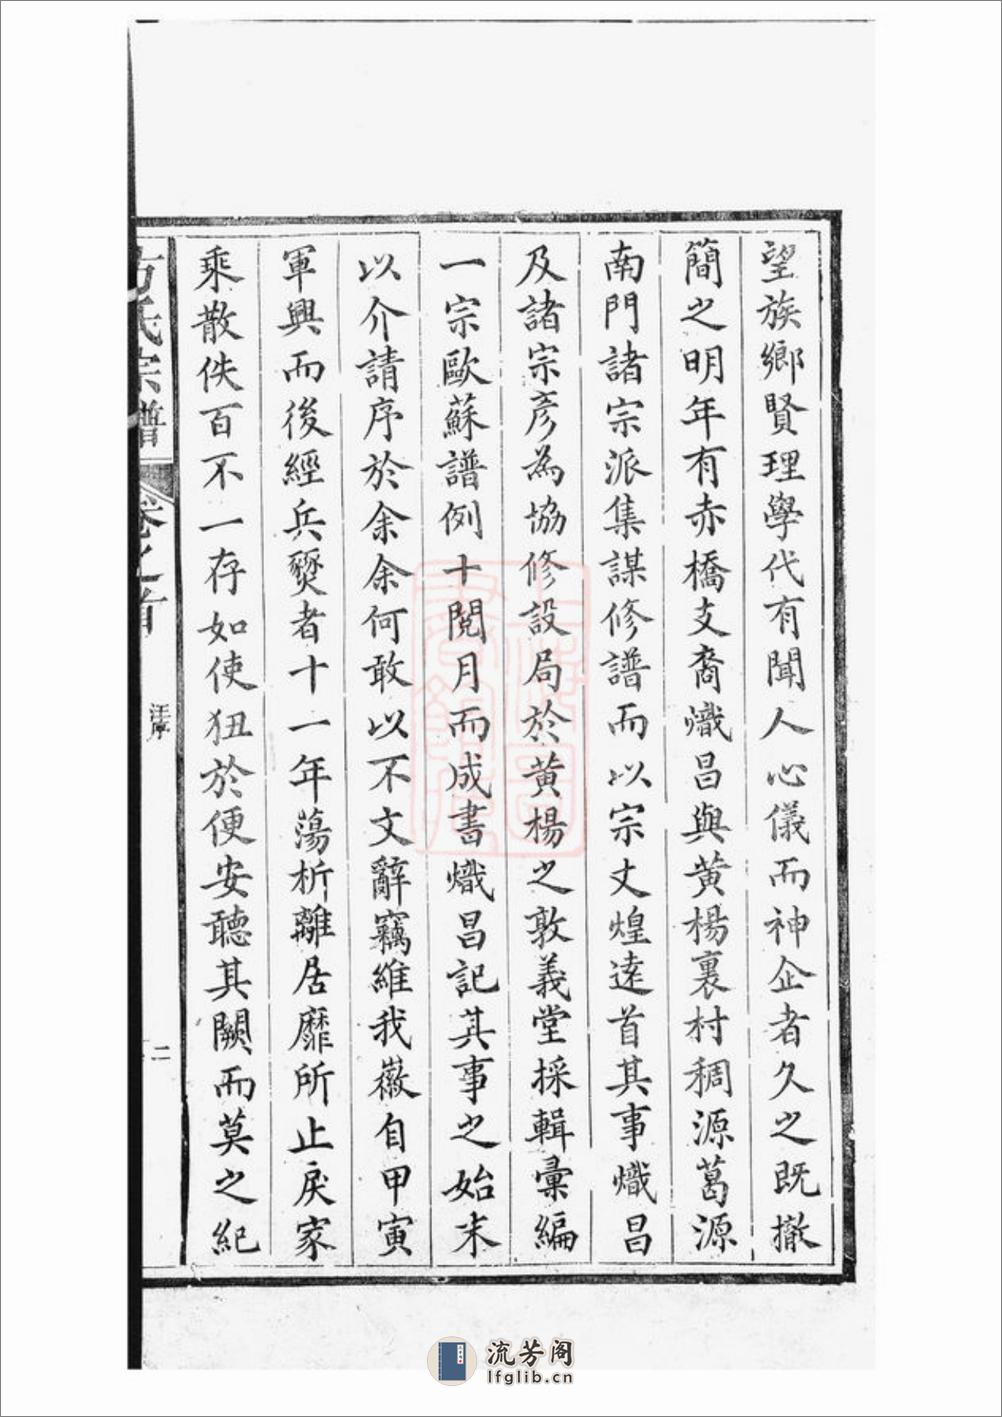 望族鄉賢理學代有聞人心儀而神企者久之既撤
簡之明年有赤橋支裔熾昌與黄楊裏村稠源葛源
南門諸宗派集謀修譜而以宗丈煌逵首其事熾昌
及諸宗彥為協修設局於黄楊之敦義堂採輯彙編
一宗歐蘇譜例十閱月而成書熾昌記其事之始末
以介請序於余余何敢以不文辭竊維我徽自甲寅
軍興而後經兵燹者十一年蕩析離居靡所止戾家
乘散佚百不一存如使狃於便安聽其闕而莫之紀
方氏宗譜
卷之首
汪序
二
流芳阁
lfglib.cn